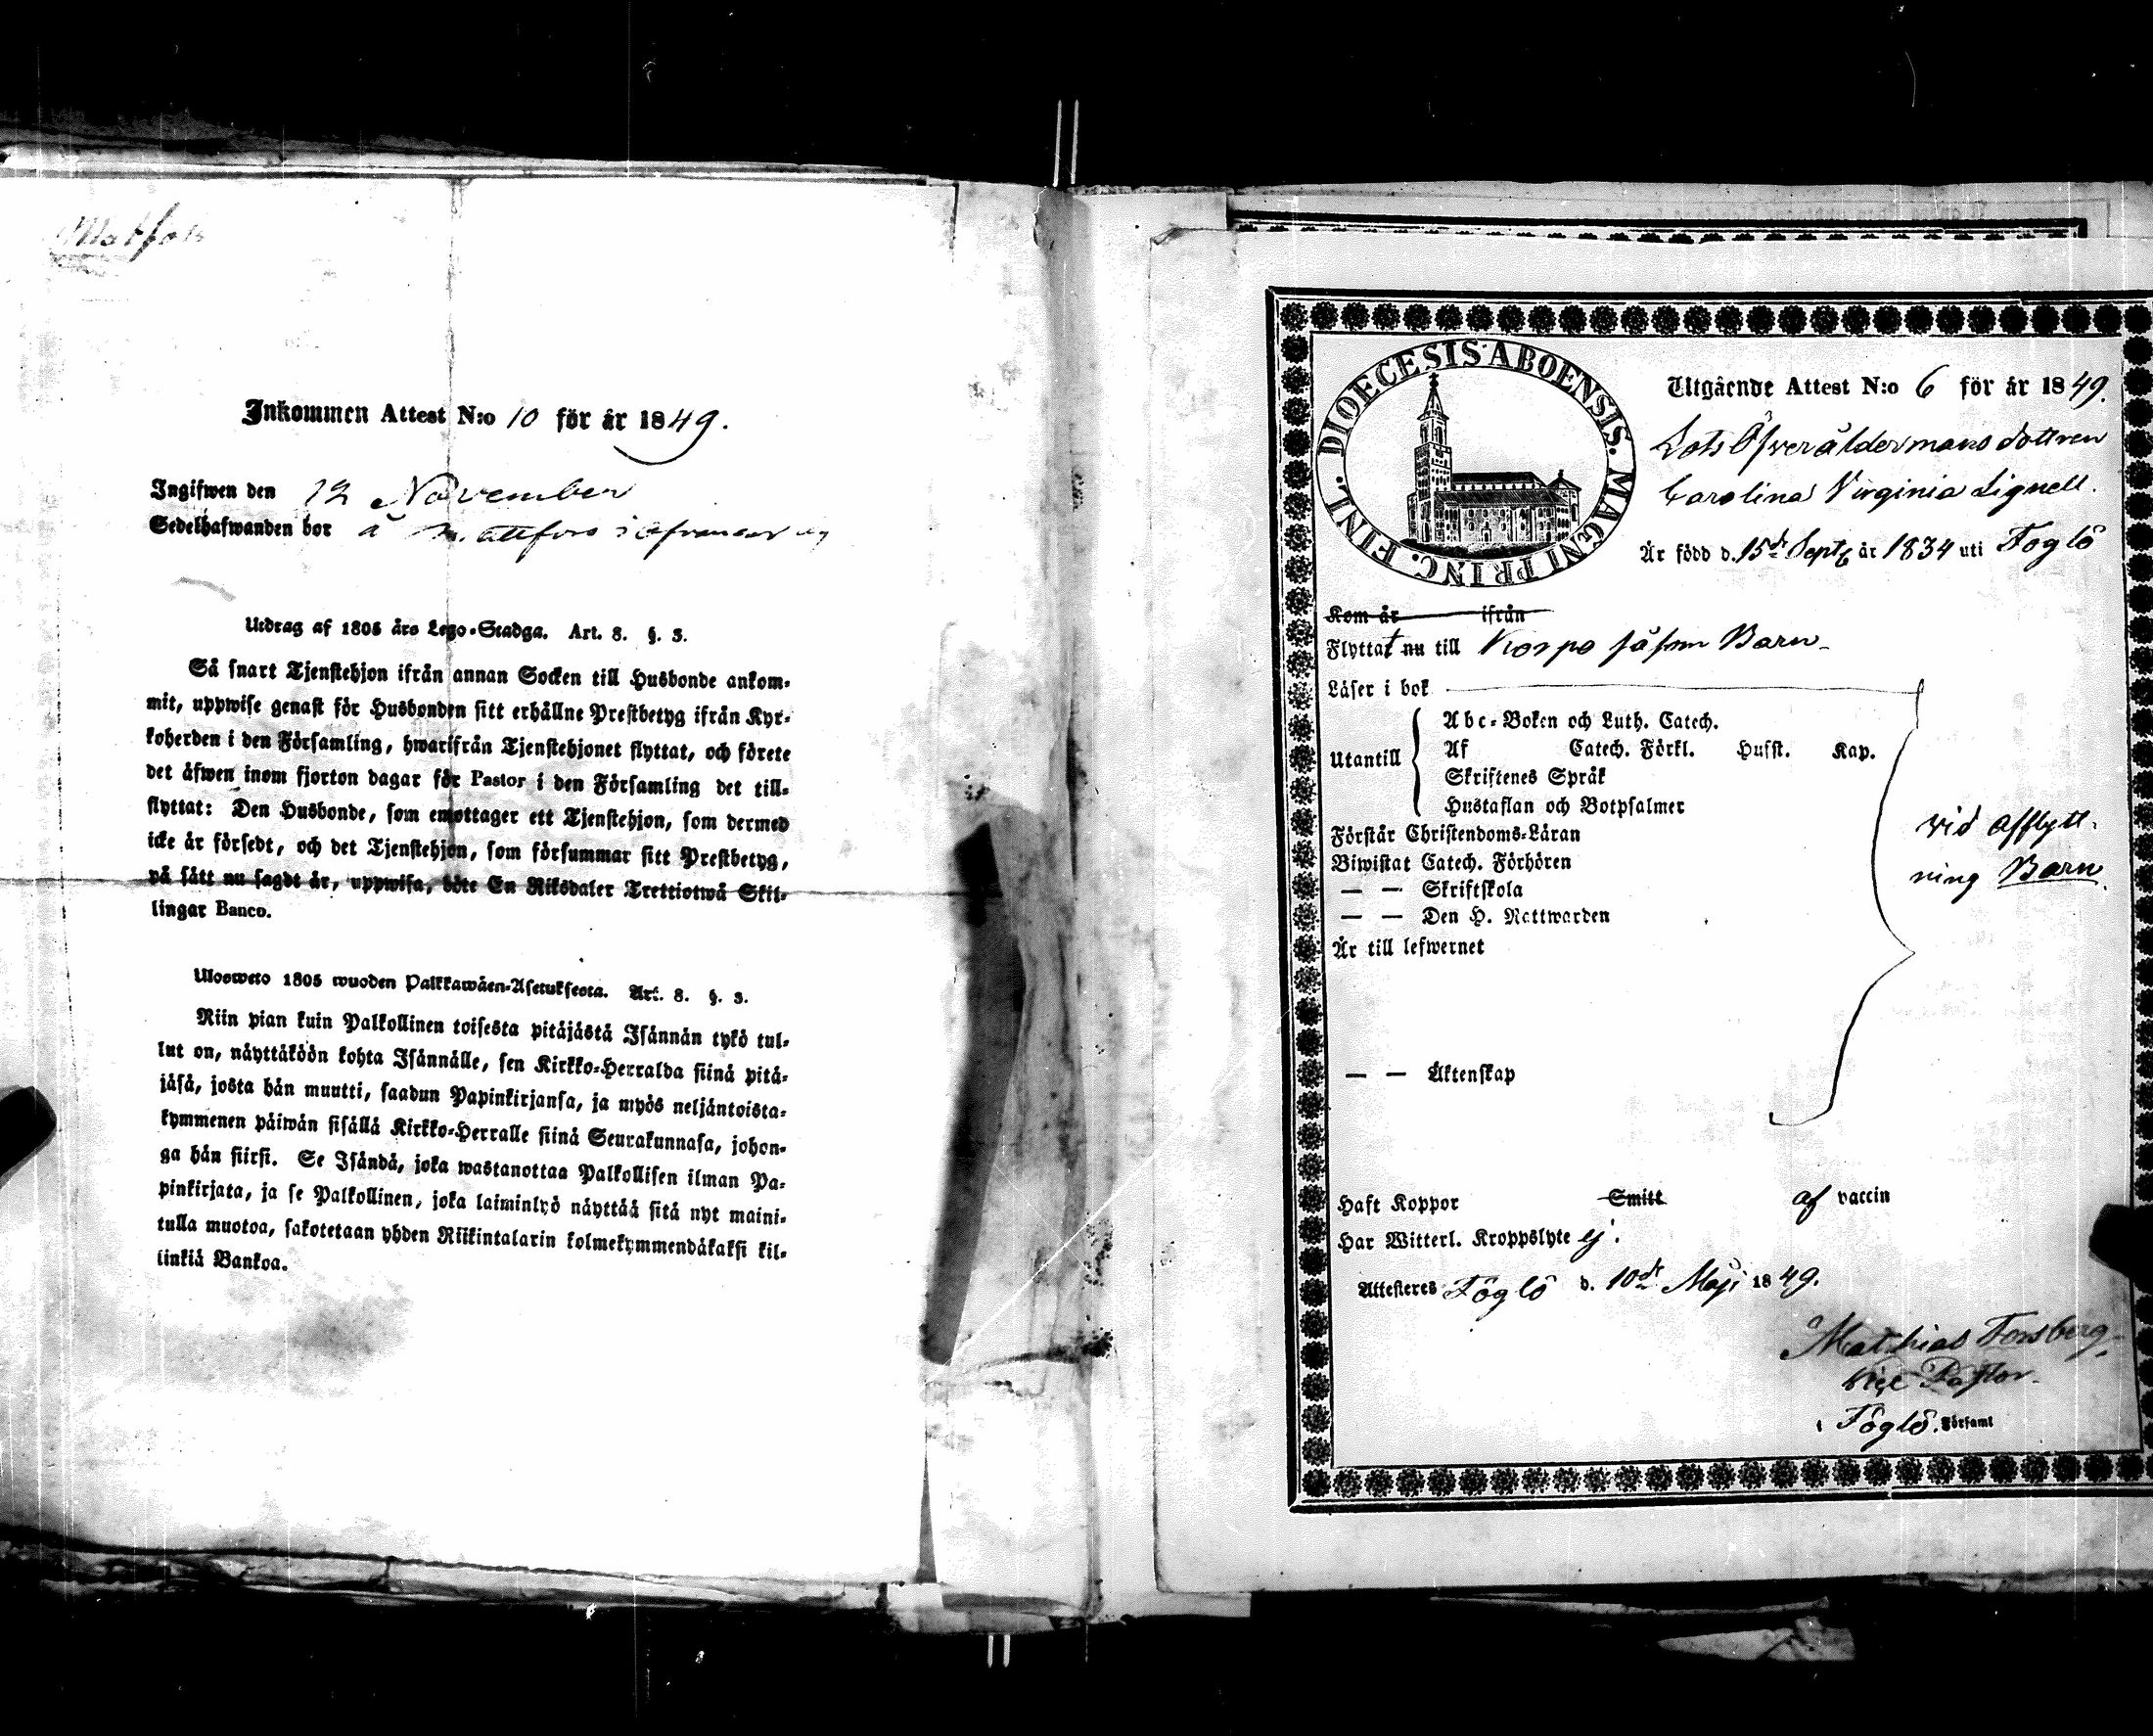 Matfors
Inkommen Attest N:o 10 för år 1849.
Ingifwen den 12 November
Sedelhafwanden bor å Mattfors i
Utdrag af 1805 års Lego-Stadga. Art. 8. §. 3.
Så snart Tjenstehjon ifrån annan Socken till Husbonde ankom-
mit, uppwise genast för Husbonden sitt erhållne Prestbetyg ifrån Kyr-
koherden i den Församling, hwarifrån Tjenstehjonet flyttat, och förete
det äfwen inom fjorton dagar för Pastor i den Församling det till-
flyttat: Den Husbonde, som emottager ett Tjenstehjon, som dermed
icke är försedt, och det Tjenstehjon, som försummar sitt Prestbetyg,
på sätt nu sagdt är, uppwisa, böte En Riksdaler Trettiotwå Skil-
lingar Banco.
Ulosweto 1805 wuoden Palkkawäen-Asetuksesta. Art. 8. §. 3.
Niin pian kuin Palkollinen toisesta pitäjästä Isännän tykö tul-
lut on, näyttäköön kohta Isännälle, sen Kirkko-Herralda siinä pitä-
jäsä, josta hän muutti, saadun Papinkirjansa, ja myös neljäntoista-
kymmenen päiwän sisällä Kirkko-Herralle siinä Seurakunnasa, johon-
ga hän siirsi. Se Isändä, joka wastanottaa Palkollisen ilman Pa-
pinkirjata, ja se Palkollinen, joka laiminlyö näyttää sitä nyt maini-
tulla muotoa, sakotetaan yhden Riikintalarin kolmekymmendäkaksi kil-
linkiä Bankoa.
DIOECESIS ABOENSIS. MAGNI PRINC. FINL.
Utgående Attest N:o 6 för år 1849.
Lots Öfveråldermans dottren
Carolina Virginia Lignell.
Är född d. 15de Sept. år 1834 uti Föglö
Kom år ifrån
Flyttat nu till Korpo såsom Barn
Läser i bok
Utantill
Abc-Boken och Luth. Catech.
Af Catech. Förkl. Husst. Kap.
Skriftenes Språk
Hustaflan och Botpsalmer
Förstår Christendoms-Läran
Biwistat Catech. Förhören
— — Skriftskola
— — Den H. Nattwarden
Är till lefwernet
vid afflytt-
ning Barn.
— — Äktenskap
Haft Koppor Smitt af vaccin
Har Witterl. Kroppslyte ej.
Attesteres Föglö d. 10de Maji 1849.
Matthias Forsberg
Vice Pastor.
i Föglö. Församl